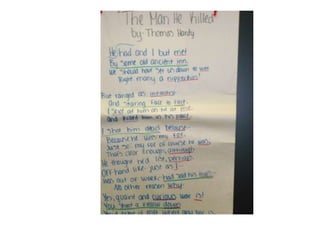 The Man He Killed
by: Thomas Hardy
He had and I but met
By some old ancient inn
We should have set us down to wet
Right many a nipperkin!
But ranged as infantry
And staring face to face
I shot at him as he at me
And killed him in his place
I shot him dead because
Because he was my foe
Just so: my foe of course he was
That's clear enough; although
He thought he'd list, perhaps
Off-hand like just as I
Was out of work had sold his traps
No other reason why.
Yes, quaint and curious war is!
You shoot a fellow down